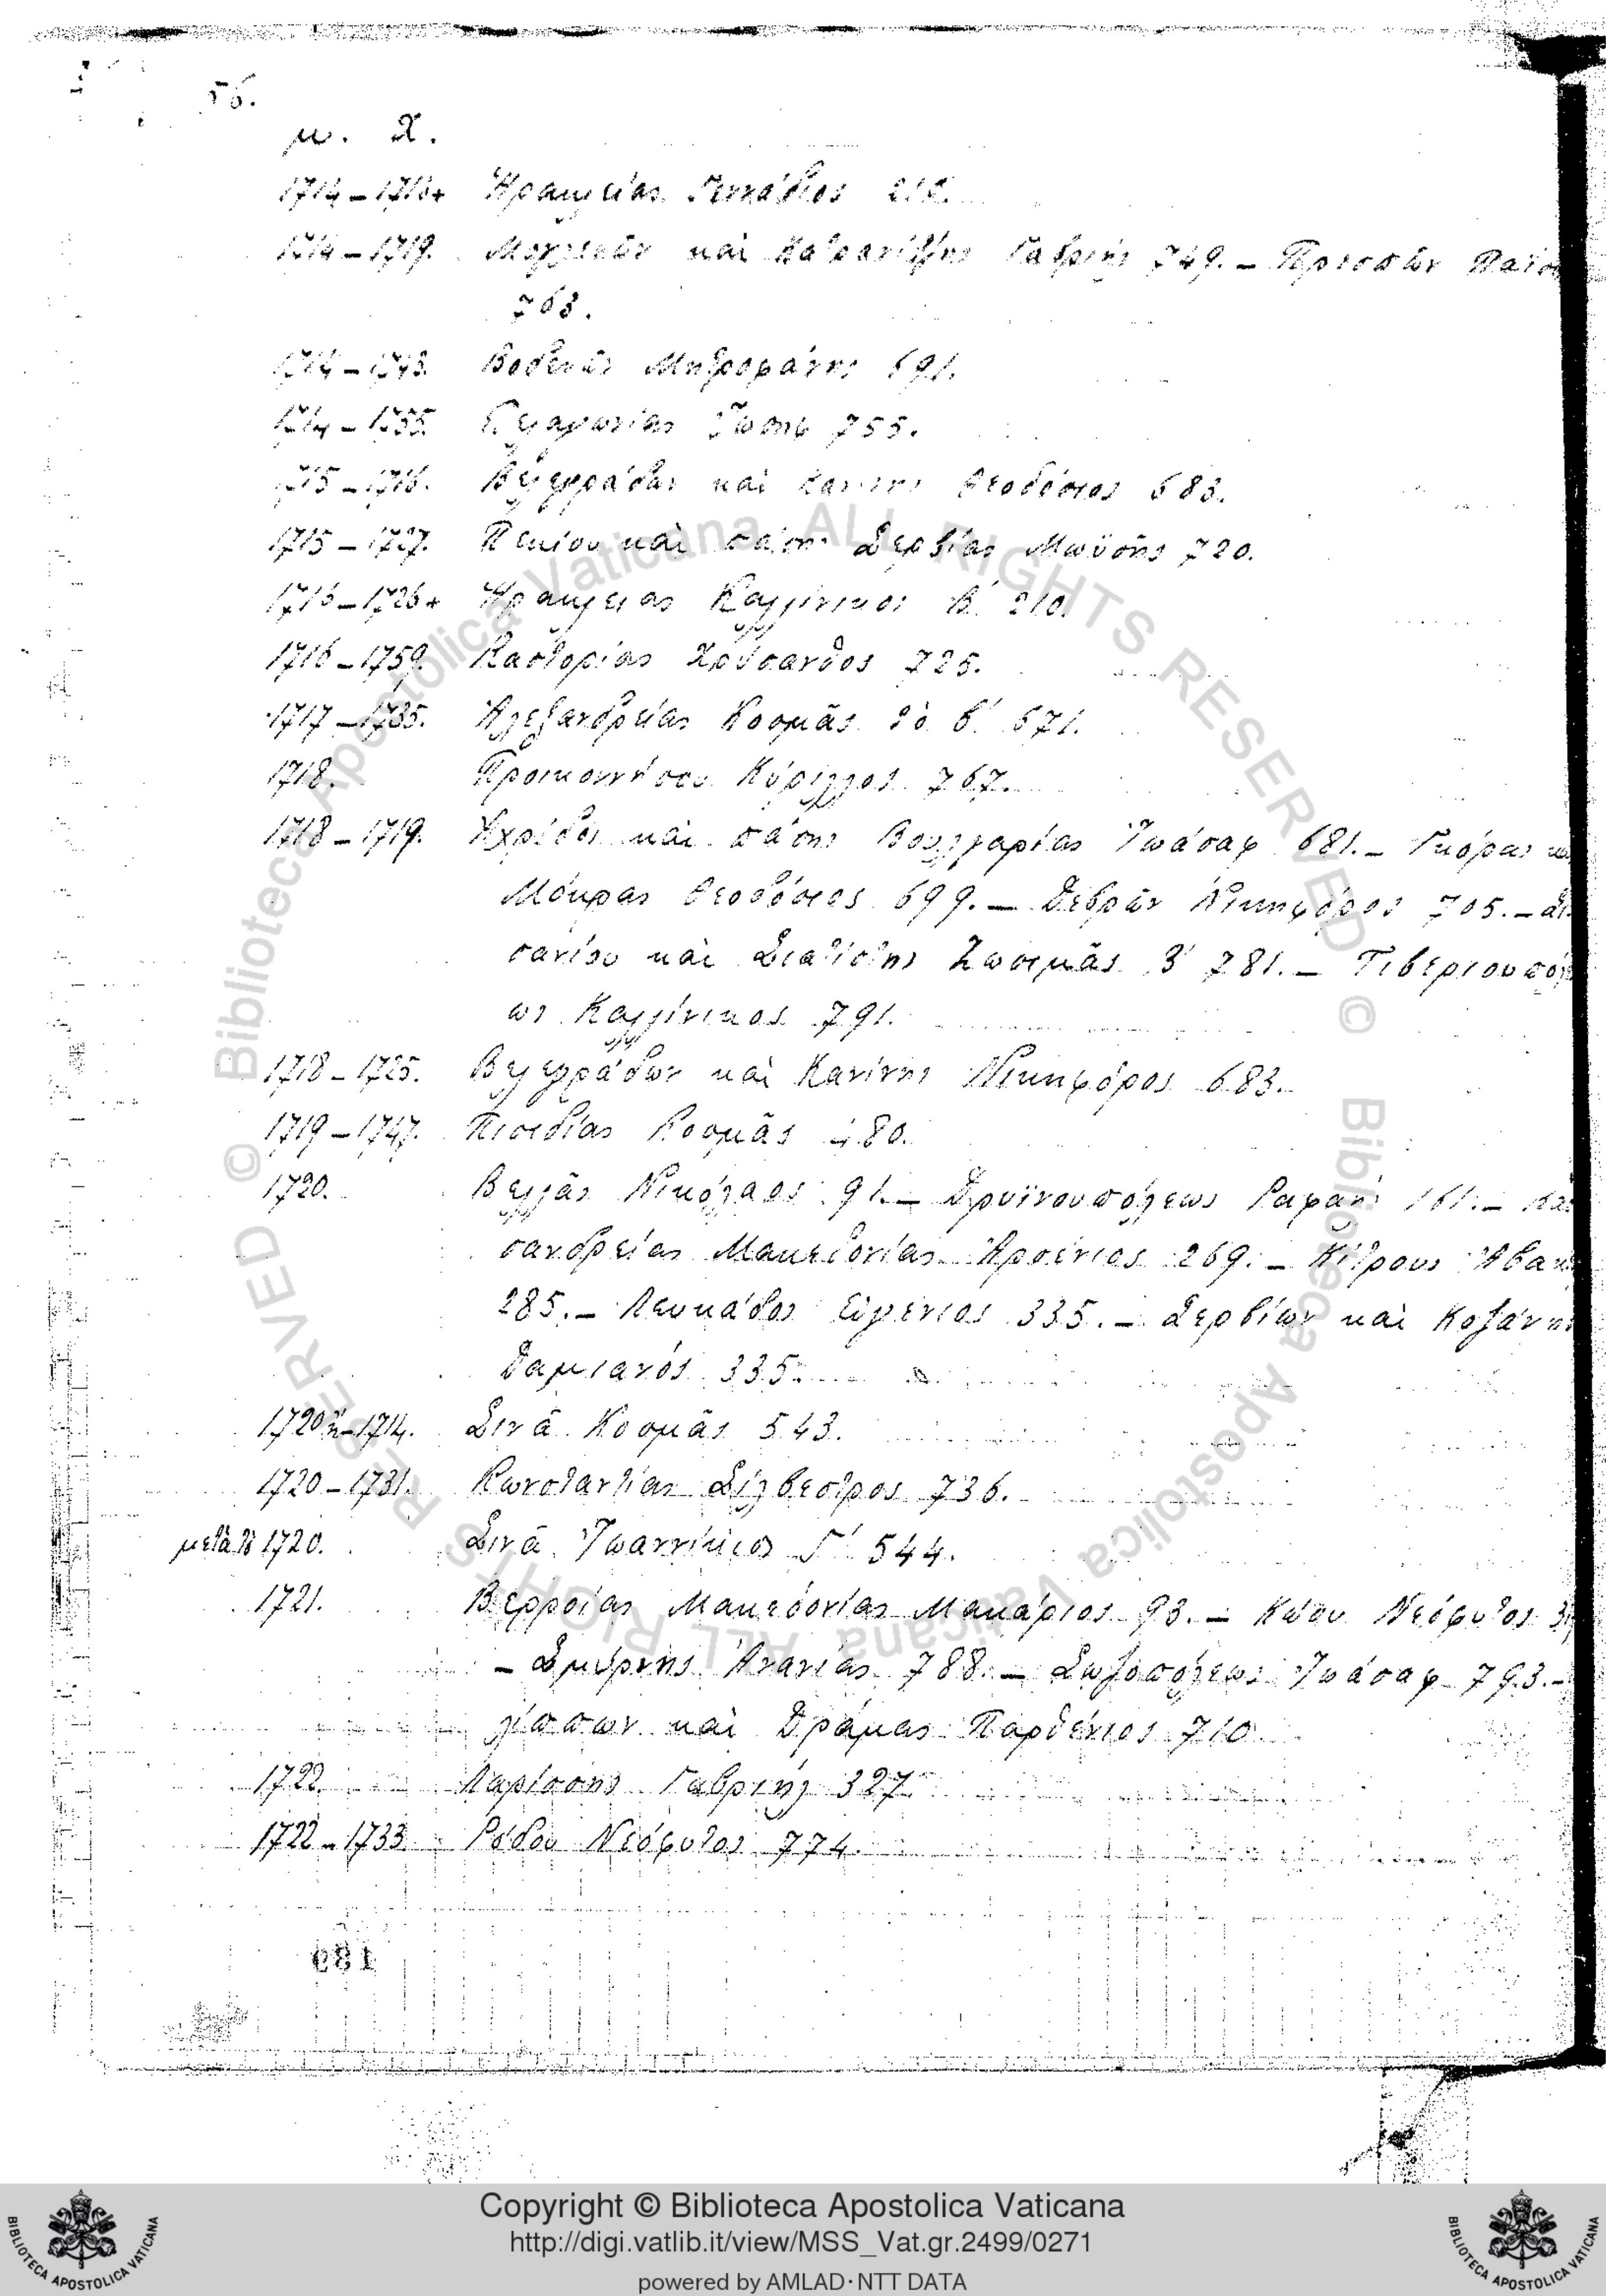 56.
μ. Χ.
1714–1716+ Ἡρακλείας Γεννάδιος
1714–1719. Μογλενῶν καὶ Γαβριὴλ 749. – Πρεσπῶν
763.
Βοδενῶν Μητροφάνης 691.
Πελαγωνίας Ἰωσὴφ 755.
1715–1716. Βελεγράδων καὶ Κανίνης Θεοδόσιος 683.
1715–1727. Πεκίου καὶ πάσης Σερβίας Μωϋσῆς 720.
1716–1726+ Ἡρακλείας Καλλίνικος Β΄ 210.
1716–1759. Καστορίας Χρύσανθος 725.
1717–1735. Ἀλεξανδρείας Κοσμᾶς τὸ β΄ 671.
1718. Προικοννήσου Κύριλλος 767.
1718–1719. Ἀχρίδος καὶ πάσης Βουλγαρίας Ἰωάσαφ 681. – Γκόρας
Μόκρας Θεοδόσιος 699. – Δεβρῶν Νικηφόρος 705. –
σανίου καὶ Σιατίστης Ζωσιμᾶς 781. – Τιβεριουπόλε
ως Καλλίνικος 791.
1718–1725. Βελεγράδων καὶ Κανίνης Νικηφόρος 683.
1719–1747. Πισιδίας Κοσμᾶς 480.
1720. Βελλᾶς Νικόλαος 91. – Δρυϊνουπόλεως Ραφαὴλ 161. –
σανδρείας Μακεδονίας Ἀρσένιος 269. – Κίτρους
285. – Λευκάδος Εὐγένιος 335. – Σερβίων καὶ Κοζάνης
Δαμιανός 335.
1720 ἢ –1714. Σινᾶ Κοσμᾶς 543.
1720–1731. Κωνσταντίας Σίλβεστρος 736.
μετὰ τὸ 1720. Σινᾶ Ἰωαννίκιος Γ΄ 544.
1721. Βερροίας Μακεδονίας Μακάριος 93. – Κώου Νεόφυτος
– Σμύρνης Ἀνανίας 788. – Σωζοπόλεως Ἰωάσαφ 793. –
λίππων καὶ Δράμας Παρθένιος 710.
1722. Λαρίσσης Γαβριὴλ 327
1722–1733. Ρόδου Νεόφυτος 774.
189
© Biblioteca Apostolica Vaticana ALL RIGHTS RESERVED
© Biblioteca Apostolica Vaticana ALL RIGHTS RESERVED
Copyright © Biblioteca Apostolica Vaticana
http://digi.vatlib.it/view/MSS_Vat.gr.2499/0271
powered by AMLAD·NTT DATA
BIBLIOTECA APOSTOLICA VATICANA
BIBLIOTECA APOSTOLICA VATICANA